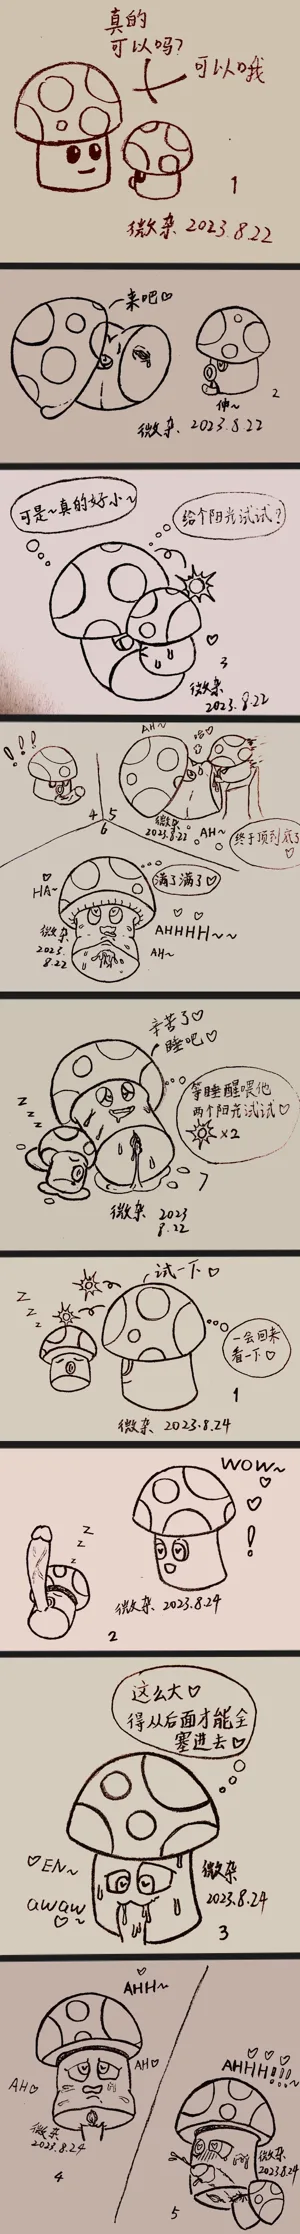 真的
可以吗?
可以哦
1
微杂 2023.8.22
来吧♡
伸~
2
微杂. 2023.8.22
可是~真的好小~
给个阳光试试?
3
微杂
2023.8.22
!!!
AH~
哈♡
4 5
6
微杂
2023.8.22
AH~
终于顶到底了
♡
HA~
满了满了♡
微杂
2023.
8.22
AHHHH~~
AH~
辛苦了♡
睡吧♡
z z z
等睡醒喂他
两个阳光试试♡
×2
7
微杂 2023
8.22
试一下♡
z z z
一会回来
看一下♡
1
微杂 2023.8.24
WOW~
!
z z z
微杂 2023.8.24
2
这么大♡
得从后面才能全
塞进去♡
♡EN~
awaw
♡~
微杂
2023.8.24
3
AHH~
AH♡
AH♡
微杂
2023.8.24
4
AHHH!!!~
微杂
2023.8.24
5